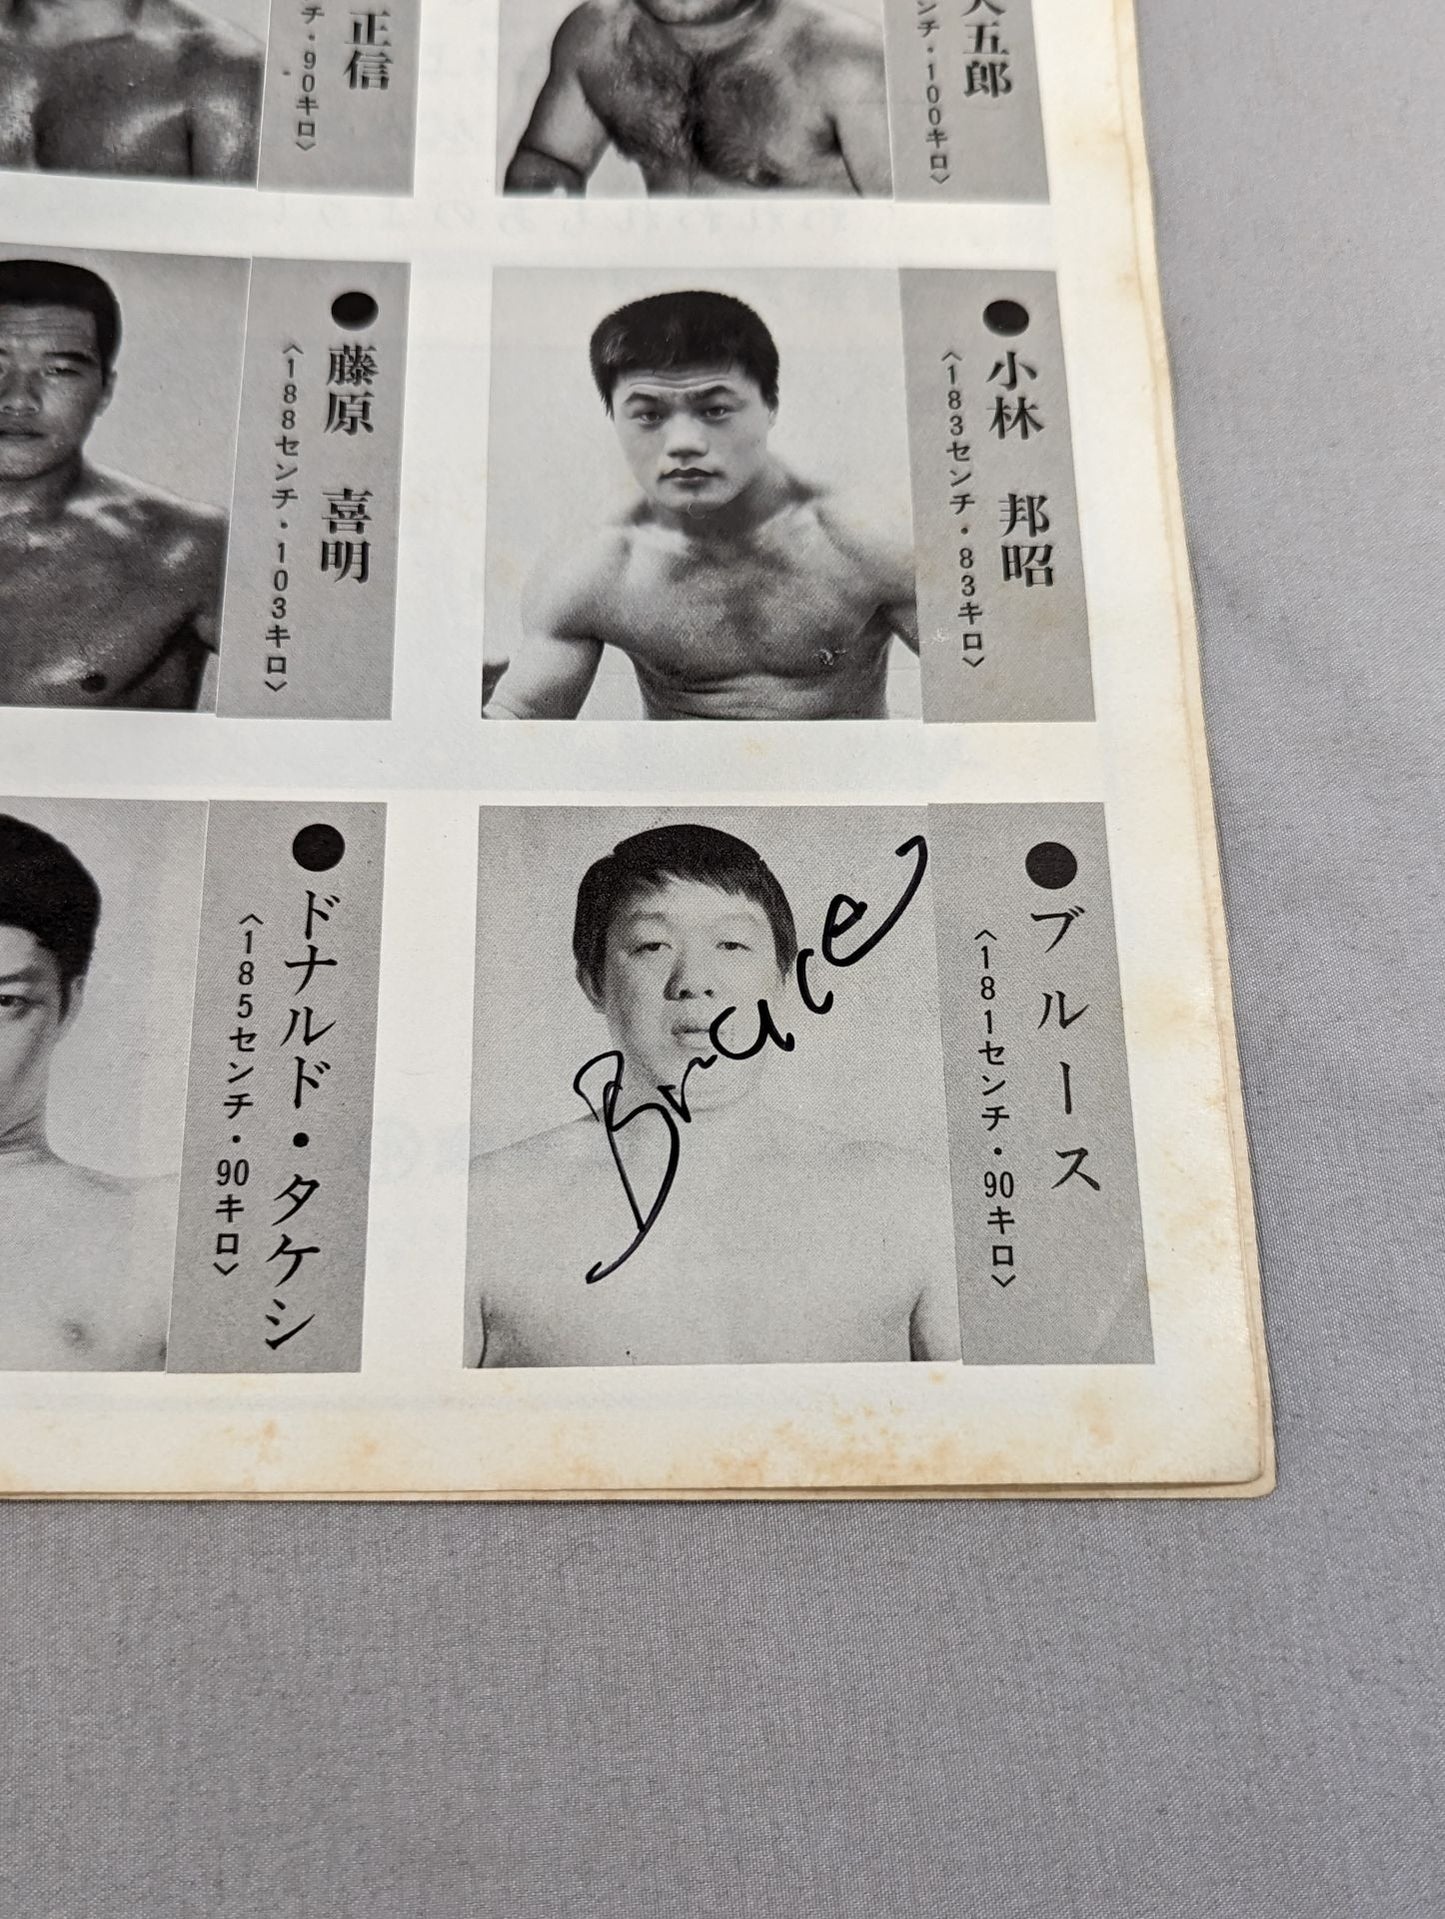 正信
チ・90キロ〉
大五郎
ンチ・100キロ〉
●藤原 喜明
〈188センチ・103キロ〉
●小林 邦昭
〈183センチ・83キロ〉
●ドナルド・タケシ
〈185センチ・90キロ〉
●ブルース
〈181センチ・90キロ〉
Bruce